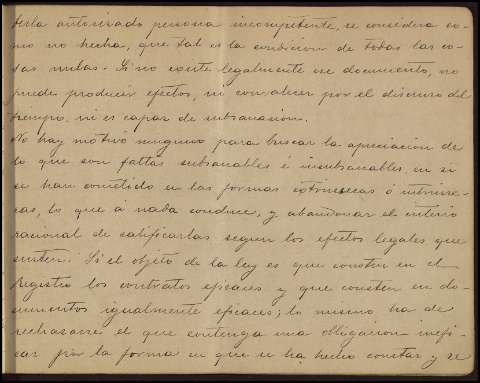 berla autorizado persona incompetente, se considera co-
mo no hecha, que tal es la condicion de todas las co-
sas nulas. Si no existe legalmente ese documento, no
puede producir efectos, ni convalecer por el discurso del
tiempo, ni es capaz de subsanacion.
No hay motivo ninguno para buscar la apreciacion de
lo que son faltas subsanables é insubsanables, en si
se han cometido en las formas extrinsecas ó intrinse-
cas, lo que a nada conduce, y abandonar el criterio
racional de calificarlas segun los efectos legales que
surten. Si el objeto de la ley es que consten en el
Registro los contratos eficaces y que consten en do-
cumentos igualmente eficaces; lo mismo ha de
rechazarse el que contenga una obligacion inefi-
caz por la forma en que se ha hecho constar y se